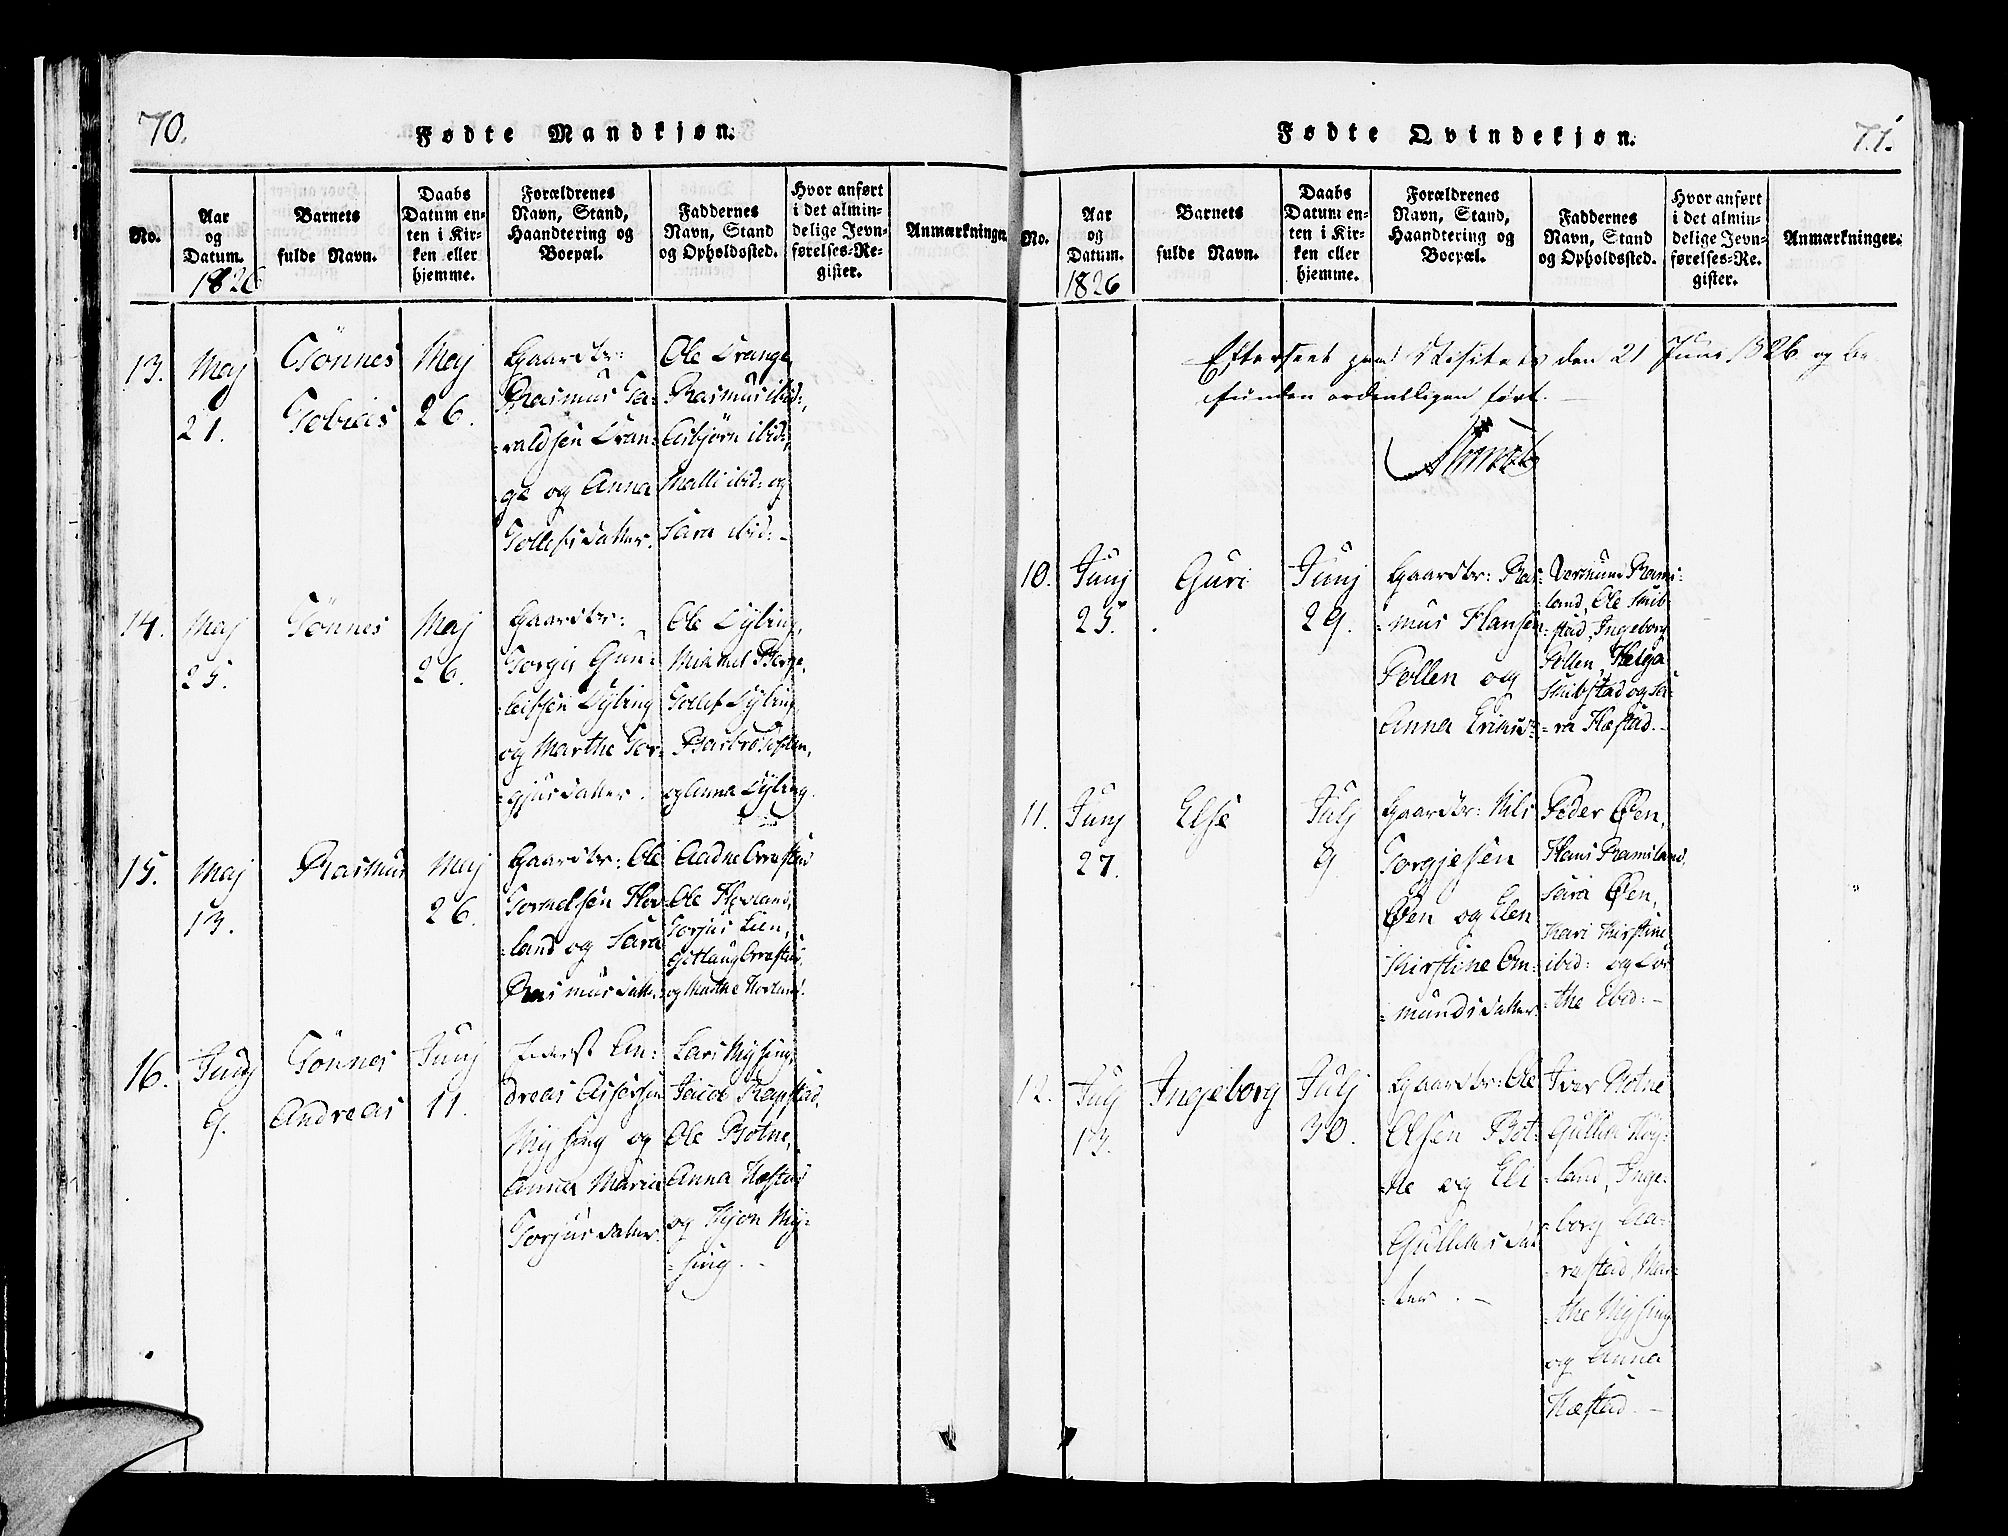 70.
Fødte Mandkjøn.
No.
Aar
og
Datum.
1826
Barnets
fulde Navn.
Daabs
Datum en-
ten i Kir-
ken eller
hjemme.
Forældrenes
Navn, Stand,
Haandtering og
Boepæl.
Faddernes
Navn, Stand
og Opholdssted.
Hvor anført
i det almin-
delige Jevn-
førelses-Re-
gister.
Anmærkninger.
13.
Maj
21.
Tönnes
Tobias
Maj
26.
Gaardbr:
Rasmus Ta-
raldsen Dran-
ge og Anna
Tollefsdatter.
Ole Drange,
Rasmus ibid:,
Asbjörn ibid:,
Malli ibid: og
Sara ibid: -
14.
Maj
25.
Tönnes
Maj
26.
Gaardbr:
Torgis Gun-
leifsen Dybing
og Marthe Tor-
gjusdatter.
Ole Dybing,
Mikkel Berge,
Tollef Dybing,
og Anna Dybing.
15.
Maj
13.
Rasmus
Maj
26.
Gaardbr: Ole
Tormelsen Hov-
land og Sara
Rasmusdatter.
Aadne Orrestad
Ole Hovland,
Torjus Lien,
og Marthe Hovland.
16.
Junj
9.
Tönnes
Andreas
Junj
11.
An-
dreas Assersen
Mysing og
Anna Maria
Torjusdatter.
Lars Mysing,
Jacob Rapstad,
Ole Botne,
Anna Hæstad
og My-
sing. -
71.
Fødte Qvindekjøn.
No.
Aar
og
Datum.
1826
Barnets
fulde Navn.
Daabs
Datum en-
ten i Kir-
ken eller
hjemme.
Forældrenes
Navn, Stand,
Haandtering og
Boepæl.
Faddernes
Navn, Stand
og Opholdssted.
Hvor anført
i det almin-
delige Jevn-
førelses-Re-
gister.
Anmærkninger.
Efterseet paa Visitats den 21 Juni 1826 og be-
funden ordentligen fört. -
10.
Junj
25.
Guri
Junj
29.
Gaardbr: Ras-
mus Hansen
Follen og
Anna Eriksd:
Vermund Rams-
land, Ole Skib-
stad, Ingeborg
Follen, Helga
Skibstad og Sa-
ra Hæstad. -
11.
Junj
27.
Else
Julj
9.
Gaardbr: Nils
Torgjesen
Øen og Elen
Kirstine Om-
mundsdatter
Peder Øen,
Hans Ramsland,
Sara Øen,
Kari Kirstine
ibid: og Dor-
the ibid: -
12.
Julj
13.
Ingeborg
Julj
30.
Gaardbr: Ole
Olsen Bot-
ne og Eli
Gullaksdat-
ter. -
Iver Botne
Gullak Höy-
land, Inge-
borg Aa-
restad, Mar-
the Mysing
og Anna
Hæstad. -